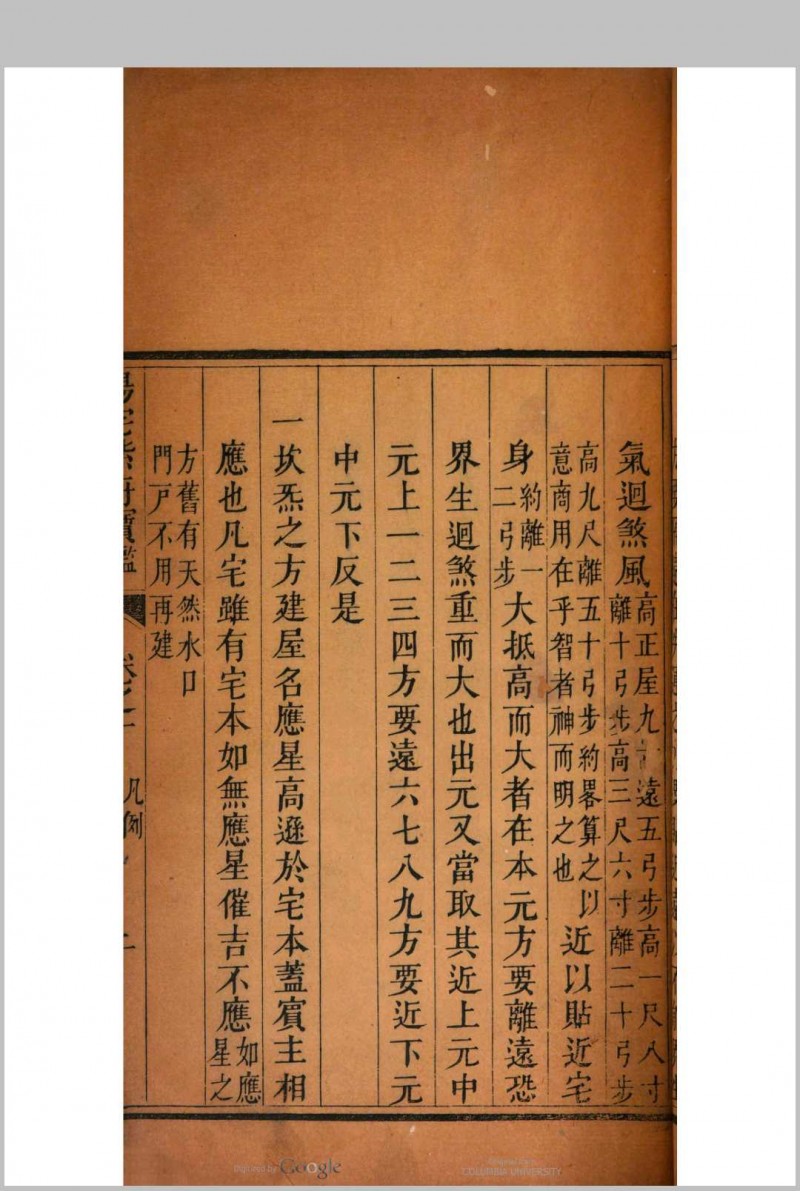 氣迴煞風高正屋九寸遠五弓步高一尺八寸離十弓步高三尺六寸離二十弓步
高九尺離五十弓步約畧算之以意商用在乎智者神而明之也近以貼近宅
身約離一二弓步大抵高而大者在本元方要離遠恐
界生迴煞重而大也出元又當取其近上元中
元上一二三四方要遠六七八九方要近下元
中元下反是
一坎炁之方建屋名應星高遜於宅本蓋賓主相
應也凡宅雖有宅本如無應星催吉不應如應星之
方舊有天然水口門戸不用再建
陽宅紫府寶鑑 卷之一 凡例 二
Digitized by Google
Original from
COLUMBIA UNIVERSITY